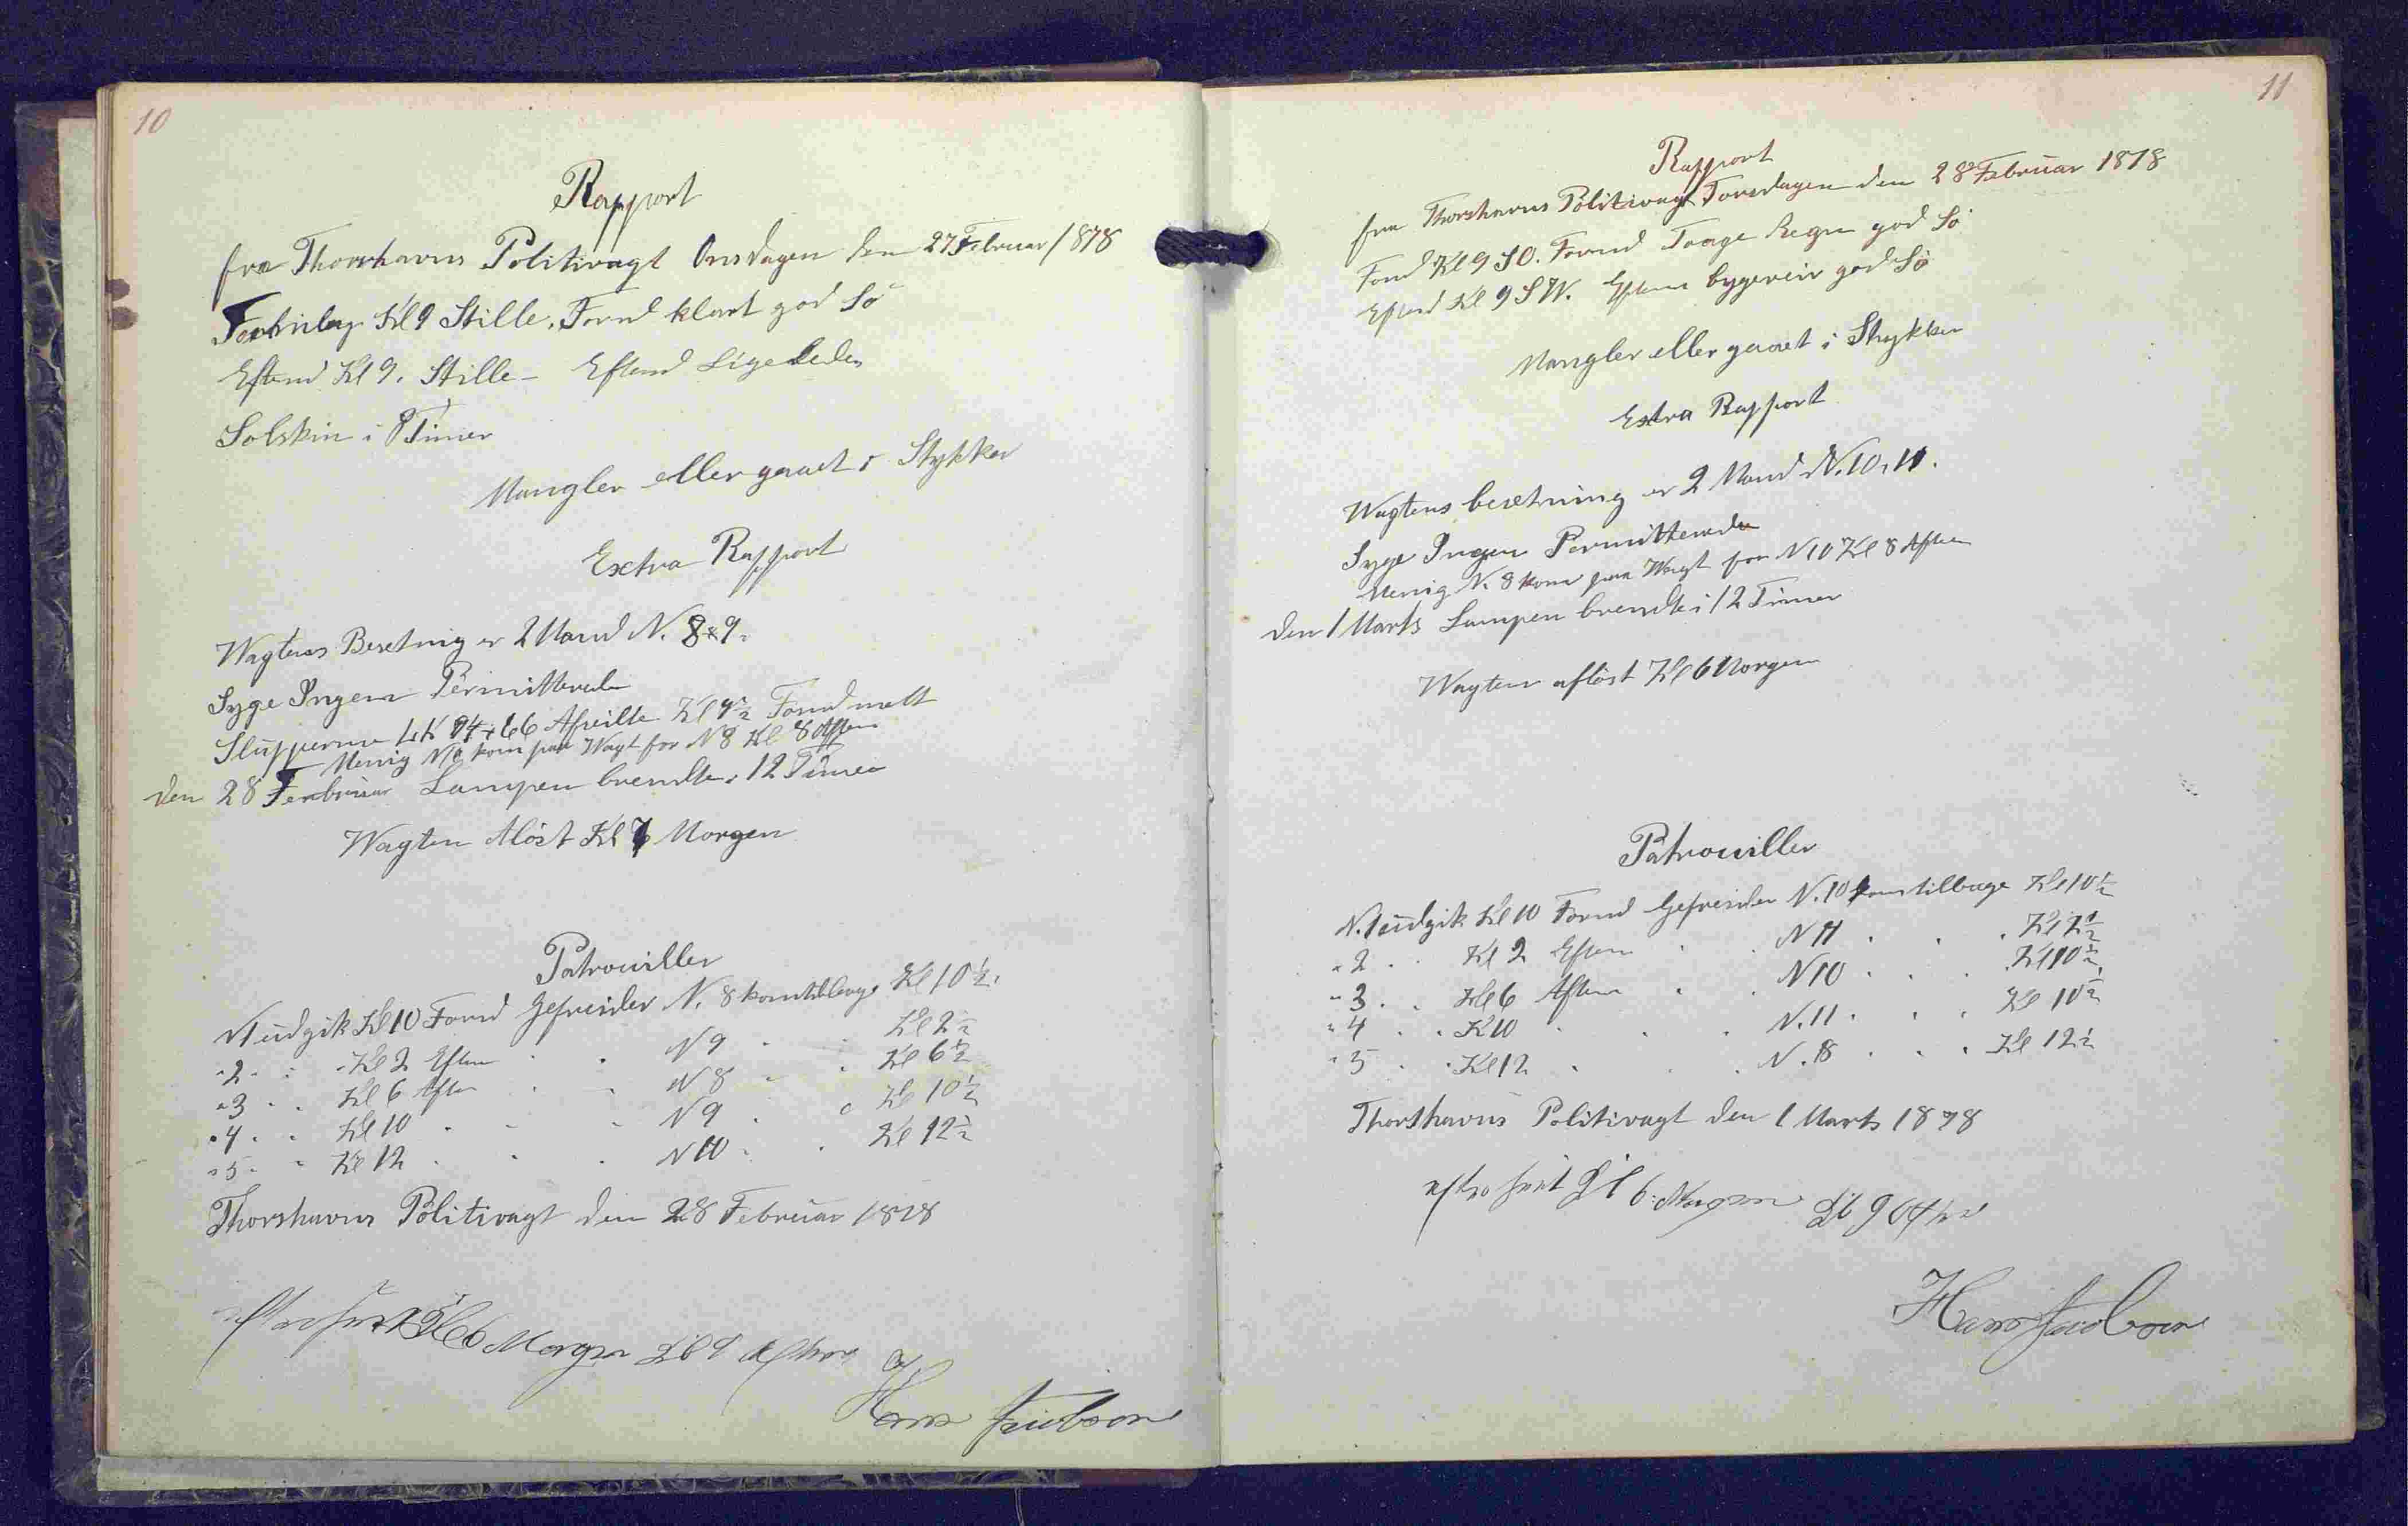 10
Rapport
fra Thorshavns Politivagt Onsdagen den 27 Februar 1878
Kl 9 Stille. Formd klart god Sø
Eftmd Kl 9. Stille – Eftmd Ligeledes
Solskin i 8 Timer
Mangler eller gaaet i Stykker
Extra Rapport
Wagtens Besetning er 2 Mand N. 8 & 9.
Syge Ingen Permitterede
Slupperne 66 Afseilte Kl 9½ Formd
Menig N10 kom paa Wagt for N 8 Kl 8 Aften
den 28 Februar Lampen brendte i 12 Timer
Wagten Aløst Kl Morgen
Patrouiller
N1 udgik Kl 10 Formd Gefreider N. 8 kom tilbage Kl 10½.
" 2 . . Kl 2 Eftm . . N 9 . . Kl 2½
" 3 . . Kl 6 Aften . . N 8 . . Kl 6½
" 4 . . Kl 10 . . . N 9 . . Kl 10½
" 5 . . Kl 12 . . . N 10 . . Kl 12½
Thorshavns Politivagt den 28 Februar 1878
Kl 6 Morgen Kl 9 Aften
Hans Jacobsen
11
Rapport
fra Thorshavns Politivagt Torsdagen den 28 Februar 1878
Formd Kl 9 SO. Formd Taage Regn god Sø
Eftmd Kl 9 SW. Eftm bygeveir god Sø
Mangler eller gaaet i Stykker
Extra Rapport
Wagtens besetning er 2 Mand N. 10, 11.
Syge Ingen Permitterede
Menig N. 8 kom paa Wagt for N 10 Kl 8 Aften
den 1 Marts Lampen brendte i 12 Timer
Wagten afløst Kl 6 Morgen
Patrouiller
N. 1 udgik Kl 10 Formd Gefreider N. 10 kom tilbage Kl 10½
" 2 . . Kl 2 Eftm . . N 11 . . . Kl 2½
" 3 . . Kl 6 Aften . . N 10 . . . Kl 10½
" 4 . . K 10 . . . N. 11 . . . Kl 10½
" 5 . . Kl 12 . . . N. 8 . . . Kl 12½
Thorshavns Politivagt den 1 Marts 1878
Kl 6 Morgen Kl 9 Aften
Hans Jacobsen